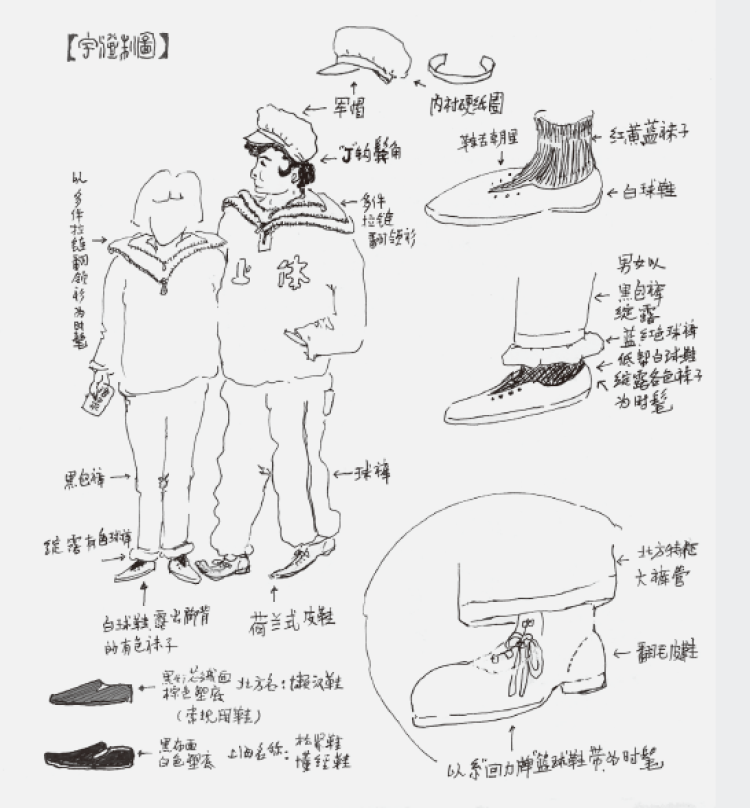 【宇澄制圖】
军帽
内衬硬纸圈
"J"钩鬓角
多件
拉链
翻领衫
以多件拉链翻领衫为时髦
上
体
鞋舌朝里
红黄蓝袜子
白球鞋
男女以
黑包裤
绽露
蓝红色球裤
低帮白球鞋
绽露各色袜子
为时髦
黑包裤
球裤
绽露有色球裤
白球鞋,露出脚背
的有色袜子
荷兰式皮鞋
北方特征
大裤管
翻毛皮鞋
以系"回力牌"篮球鞋带为时髦
棕色塑底
北方名:懒汉鞋
(常规用鞋)
黑布面
白色塑底
上海名称:松紧鞋
懂经鞋